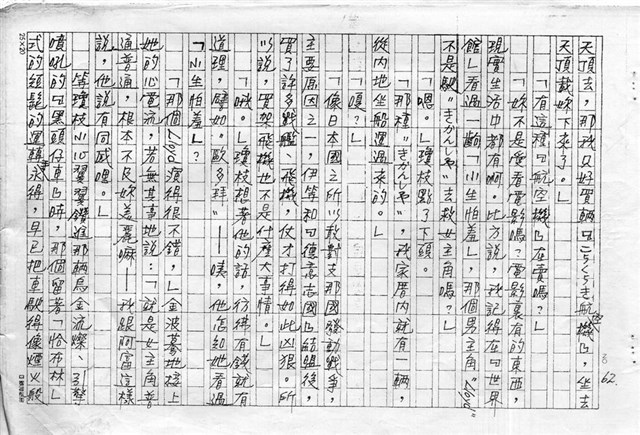 天去,那我只好買輛「こうくうき航空機」,坐去
天頂載妳下來了。」
「有這種「航空機」在賣嗎?」
「妳不是愛看電影嗎?電影裏有的東西,
現實生活中都有啊。比方說,我記得在「世界
館」看過一齣「小生怕羞」,那個男主角"Lloyd"
不是駛"きかんしゃ"去救女主角嗎?」
「嗯。」瓊枝點了下頭。
「那種"きかんしゃ",我家厝內就有一輛,
從內地坐船運過來的。」
「嗄?」
「像日本國之所以敢對支那國發動戰爭,
主要原因之一,伊等和「德意志國」結盟後,
買了許多戰艦、飛機,仗才打得如此凶狠。所
以說,買架飛機也不是什麼大事情。」
「哦。」瓊枝想著他的話,彷彿有錢就有
道理,譬如。歐多拜"——咦,他怎知她看過
「小生怕羞」?
「那個Lloyd演得很不錯,」金波驀地接上
她的心電流,若無其事地說:「就是女主角普
通普通,根本不及妳美麗嘛——我跟阿富這樣
說,他說有同感哩。」
等瓊枝小心翼翼鑽進那輛烏金流爍、引擎
噴吼的「黑頭仔車」時,那個留著「恰布林」
式的短髭的運轉手,早已把車駛得像煙火般
62
25×20